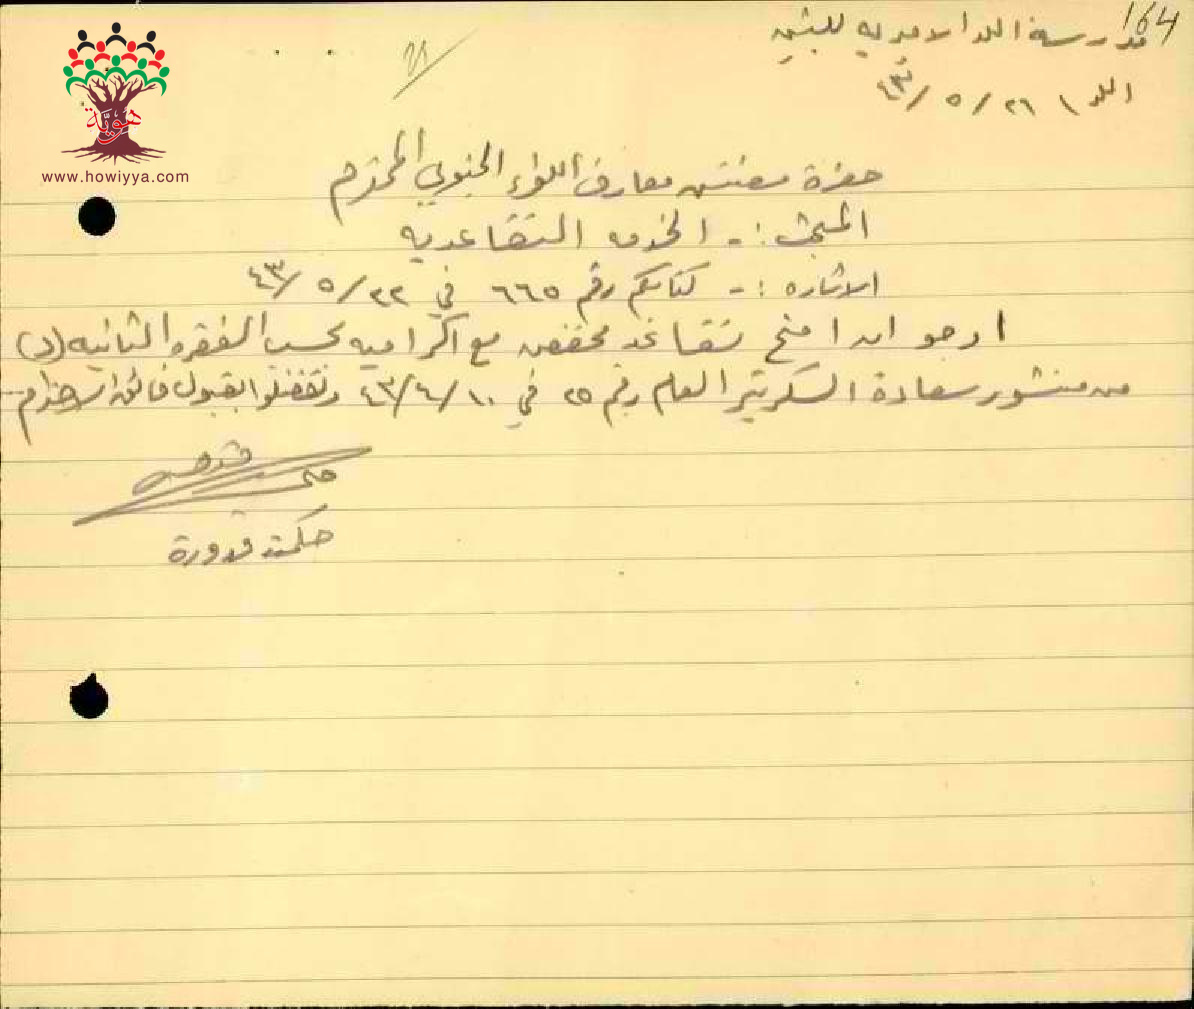 164
مدرسة اللد الاميريه للبنين
اللد ٢٦ / ٥ / ٤٣
هويّة
www.howiyya.com
حضرة مفتش معارف اللواء الجنوبي المحترم
المبحث :- الخدمه التقاعديه
الاشاره :- كتابكم رقم ٦٦٥ في ٢٢ / ٥ / ٤٣
ارجو ان امنح تقاعد مخفض مع اكراميه بحسب الفقره الثانيه (د)
من منشور سعادة السكرتير العام رقم ٢٥ في ١٠ / ٤ / ٤٣ وتفضلوا بقبول فائق احترام
حكمت قدورة